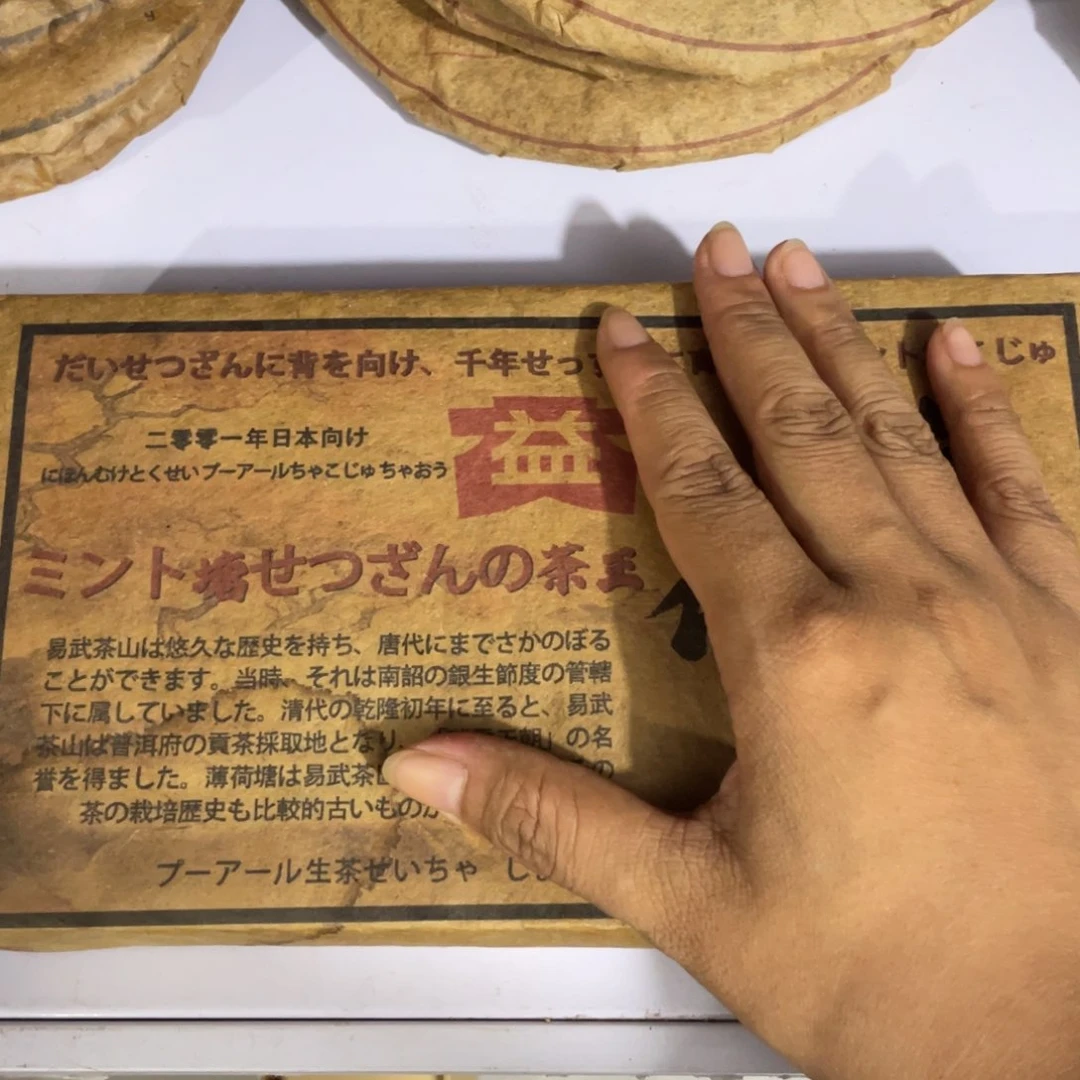 だいせつざんに背を向け、千年せっ
じゅ
益
二零零一年日本向け
にほんむけとくせいプーアールちゃこじゅちゃおう
ミント塘せつざんの茶王
易武茶山は悠久な歴史を持ち、唐代にまでさかのぼる
ことができます。当時、それは南詔の銀生節度の管轄
下に属していました。清代の乾隆初年に至ると、易武
茶山は普洱府の貢茶採取地となり、 朝」の名
誉を得ました。薄荷塘は易武茶 の
茶の栽培歴史も比較的古いもの
プーアール生茶せいちゃ し